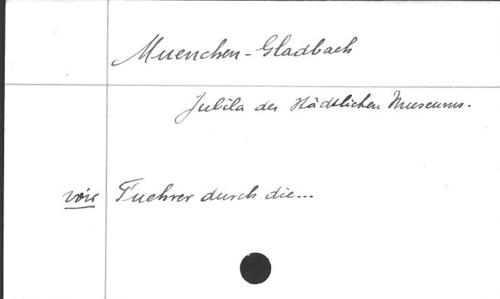 Muenchen-Gladbach
Jubila des städtlichen Museums.
voir Fuehrer durch die...